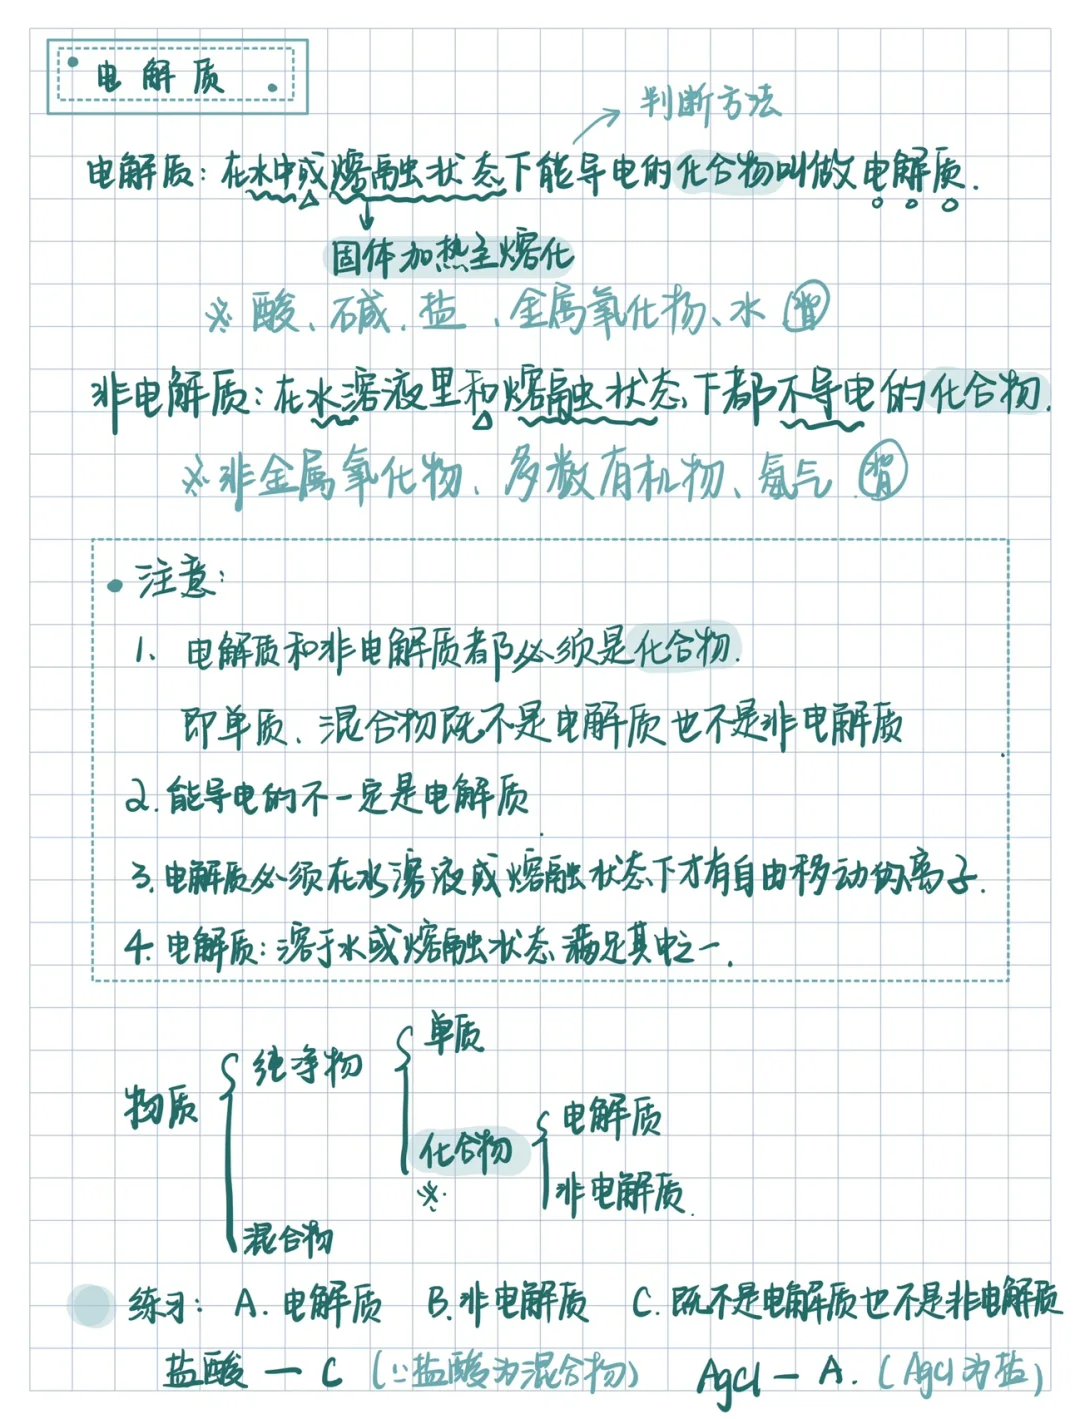 电解质
判断方法
电解质：在水中或熔融状态下能导电的化合物叫做电解质.
固体加热至熔化
※ 酸、碱、盐、金属氧化物、水 背
非电解质：在水溶液里和熔融状态下都不导电的化合物.
※非金属氧化物、多数有机物、氨气 背
注意：
1、电解质和非电解质都必须是化合物.
即单质、混合物既不是电解质也不是非电解质
2.能导电的不一定是电解质
3.电解质必须在水溶液或熔融状态下才有自由移动的离子.
4.电解质：溶于水或熔融状态满足其中之一.
物质
纯净物
单质
化合物
※
电解质
非电解质.
混合物
练习：A.电解质 B.非电解质 C.既不是电解质也不是非电解质
盐酸 — C (∵盐酸为混合物) AgCl — A. (AgCl为盐)